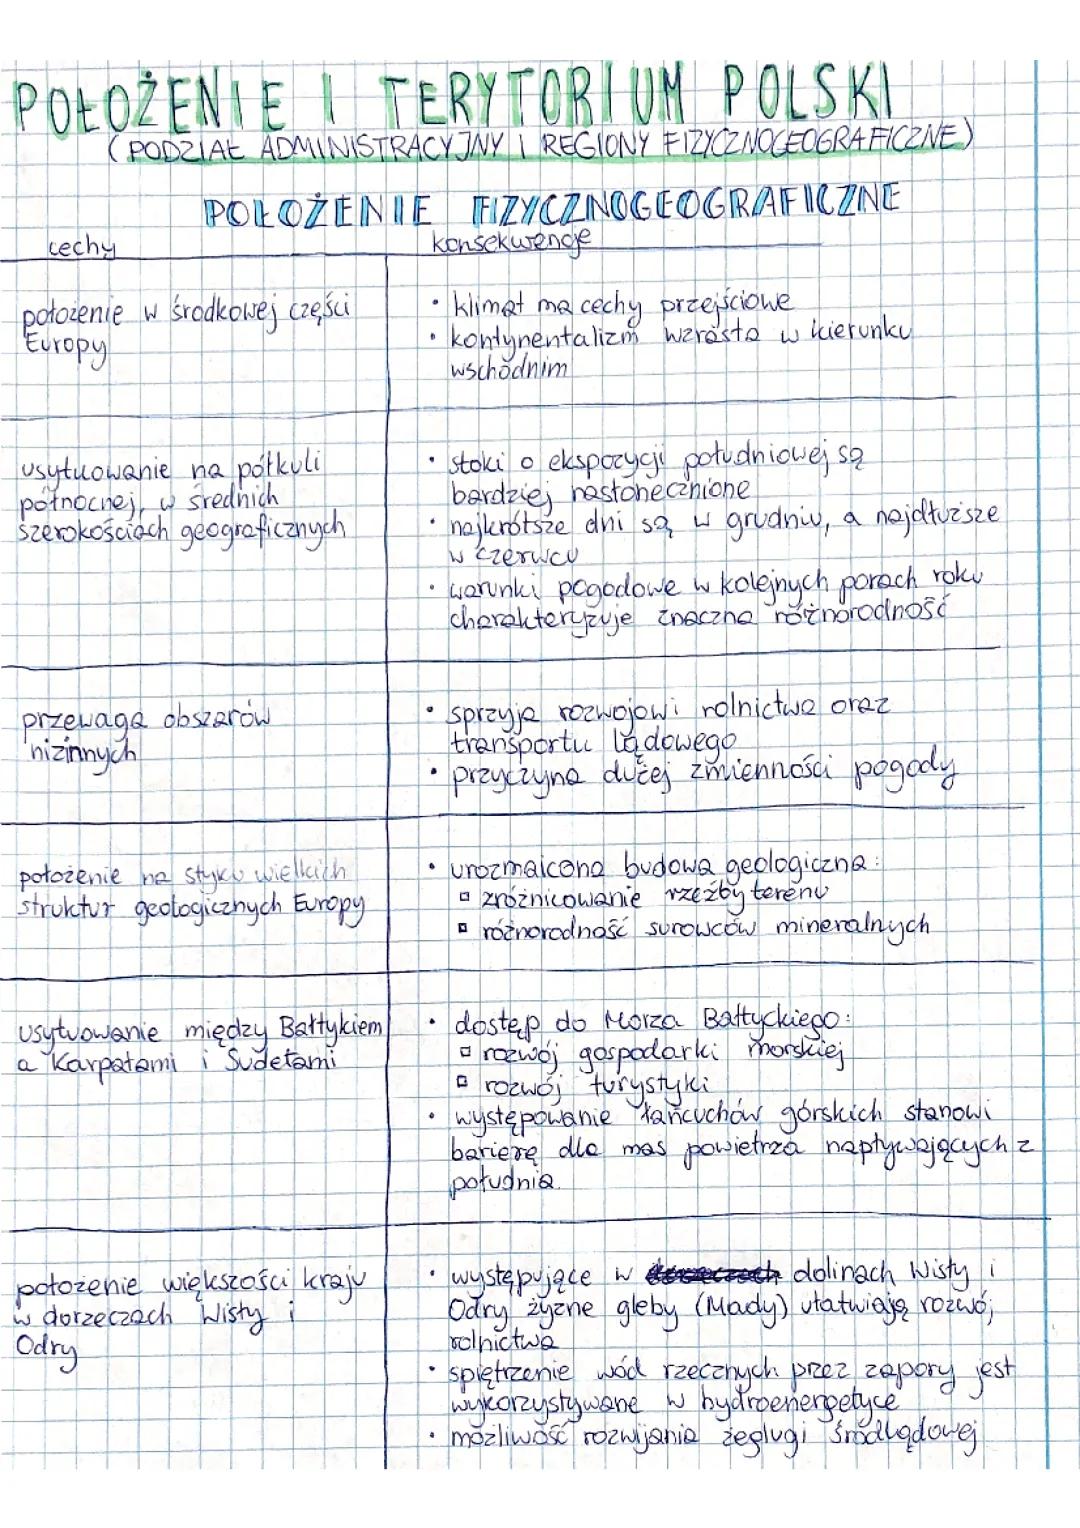 POŁOŻENIE I TERYTORIUM POLSKI
(PODZIAŁ ADMINISTRACYJNY I REGIONY FIZYCZNOGEOGRAFICZNE)
POŁOŻENIE FIZYCZNOGEOGRAFICZNE
cechy
konsekwencje
położenie w środkowej części
Europy
• klimat ma cechy przejściowe
• kontynentalizm wzrasta w kierunku
wschodnim
usytuowanie na półkuli
północnej, w średnich
szerokościach geograficznych
• stoki o ekspozycji południowej są
bardziej nasłonecznione
• najkrótsze dni są w grudniu, a najdłuższe
w czerwcu
• warunki pogodowe w kolejnych porach roku
charakteryzuje znaczna różnorodność
przewaga obszarów
nizinnych
• sprzyja rozwojowi rolnictwa oraz
transportu lądowego
• przyczyna dużej zmienności pogody
położenie na styku wielkich
struktur geologicznych Europy
• urozmaicona budowa geologiczna:
▫ zróżnicowanie rzeźby terenu
▫ różnorodność surowców mineralnych
usytuowanie między Bałtykiem
a Karpatami i Sudetami
• dostęp do Morza Bałtyckiego:
▫ rozwój gospodarki morskiej
▫ rozwój turystyki
• występowanie łańcuchów górskich stanowi
barierę dla mas powietrza napływających z
południa
położenie większości kraju
w dorzeczach Wisły i
Odry
• występujące w dolinach Wisły i
Odry, żyzne gleby (Mady) ułatwiają rozwój
rolnictwa
• spiętrzenie wód rzecznych przez zapory jest
wykorzystywane w hydroenergetyce
• możliwość rozwijania żeglugi śródlądowej